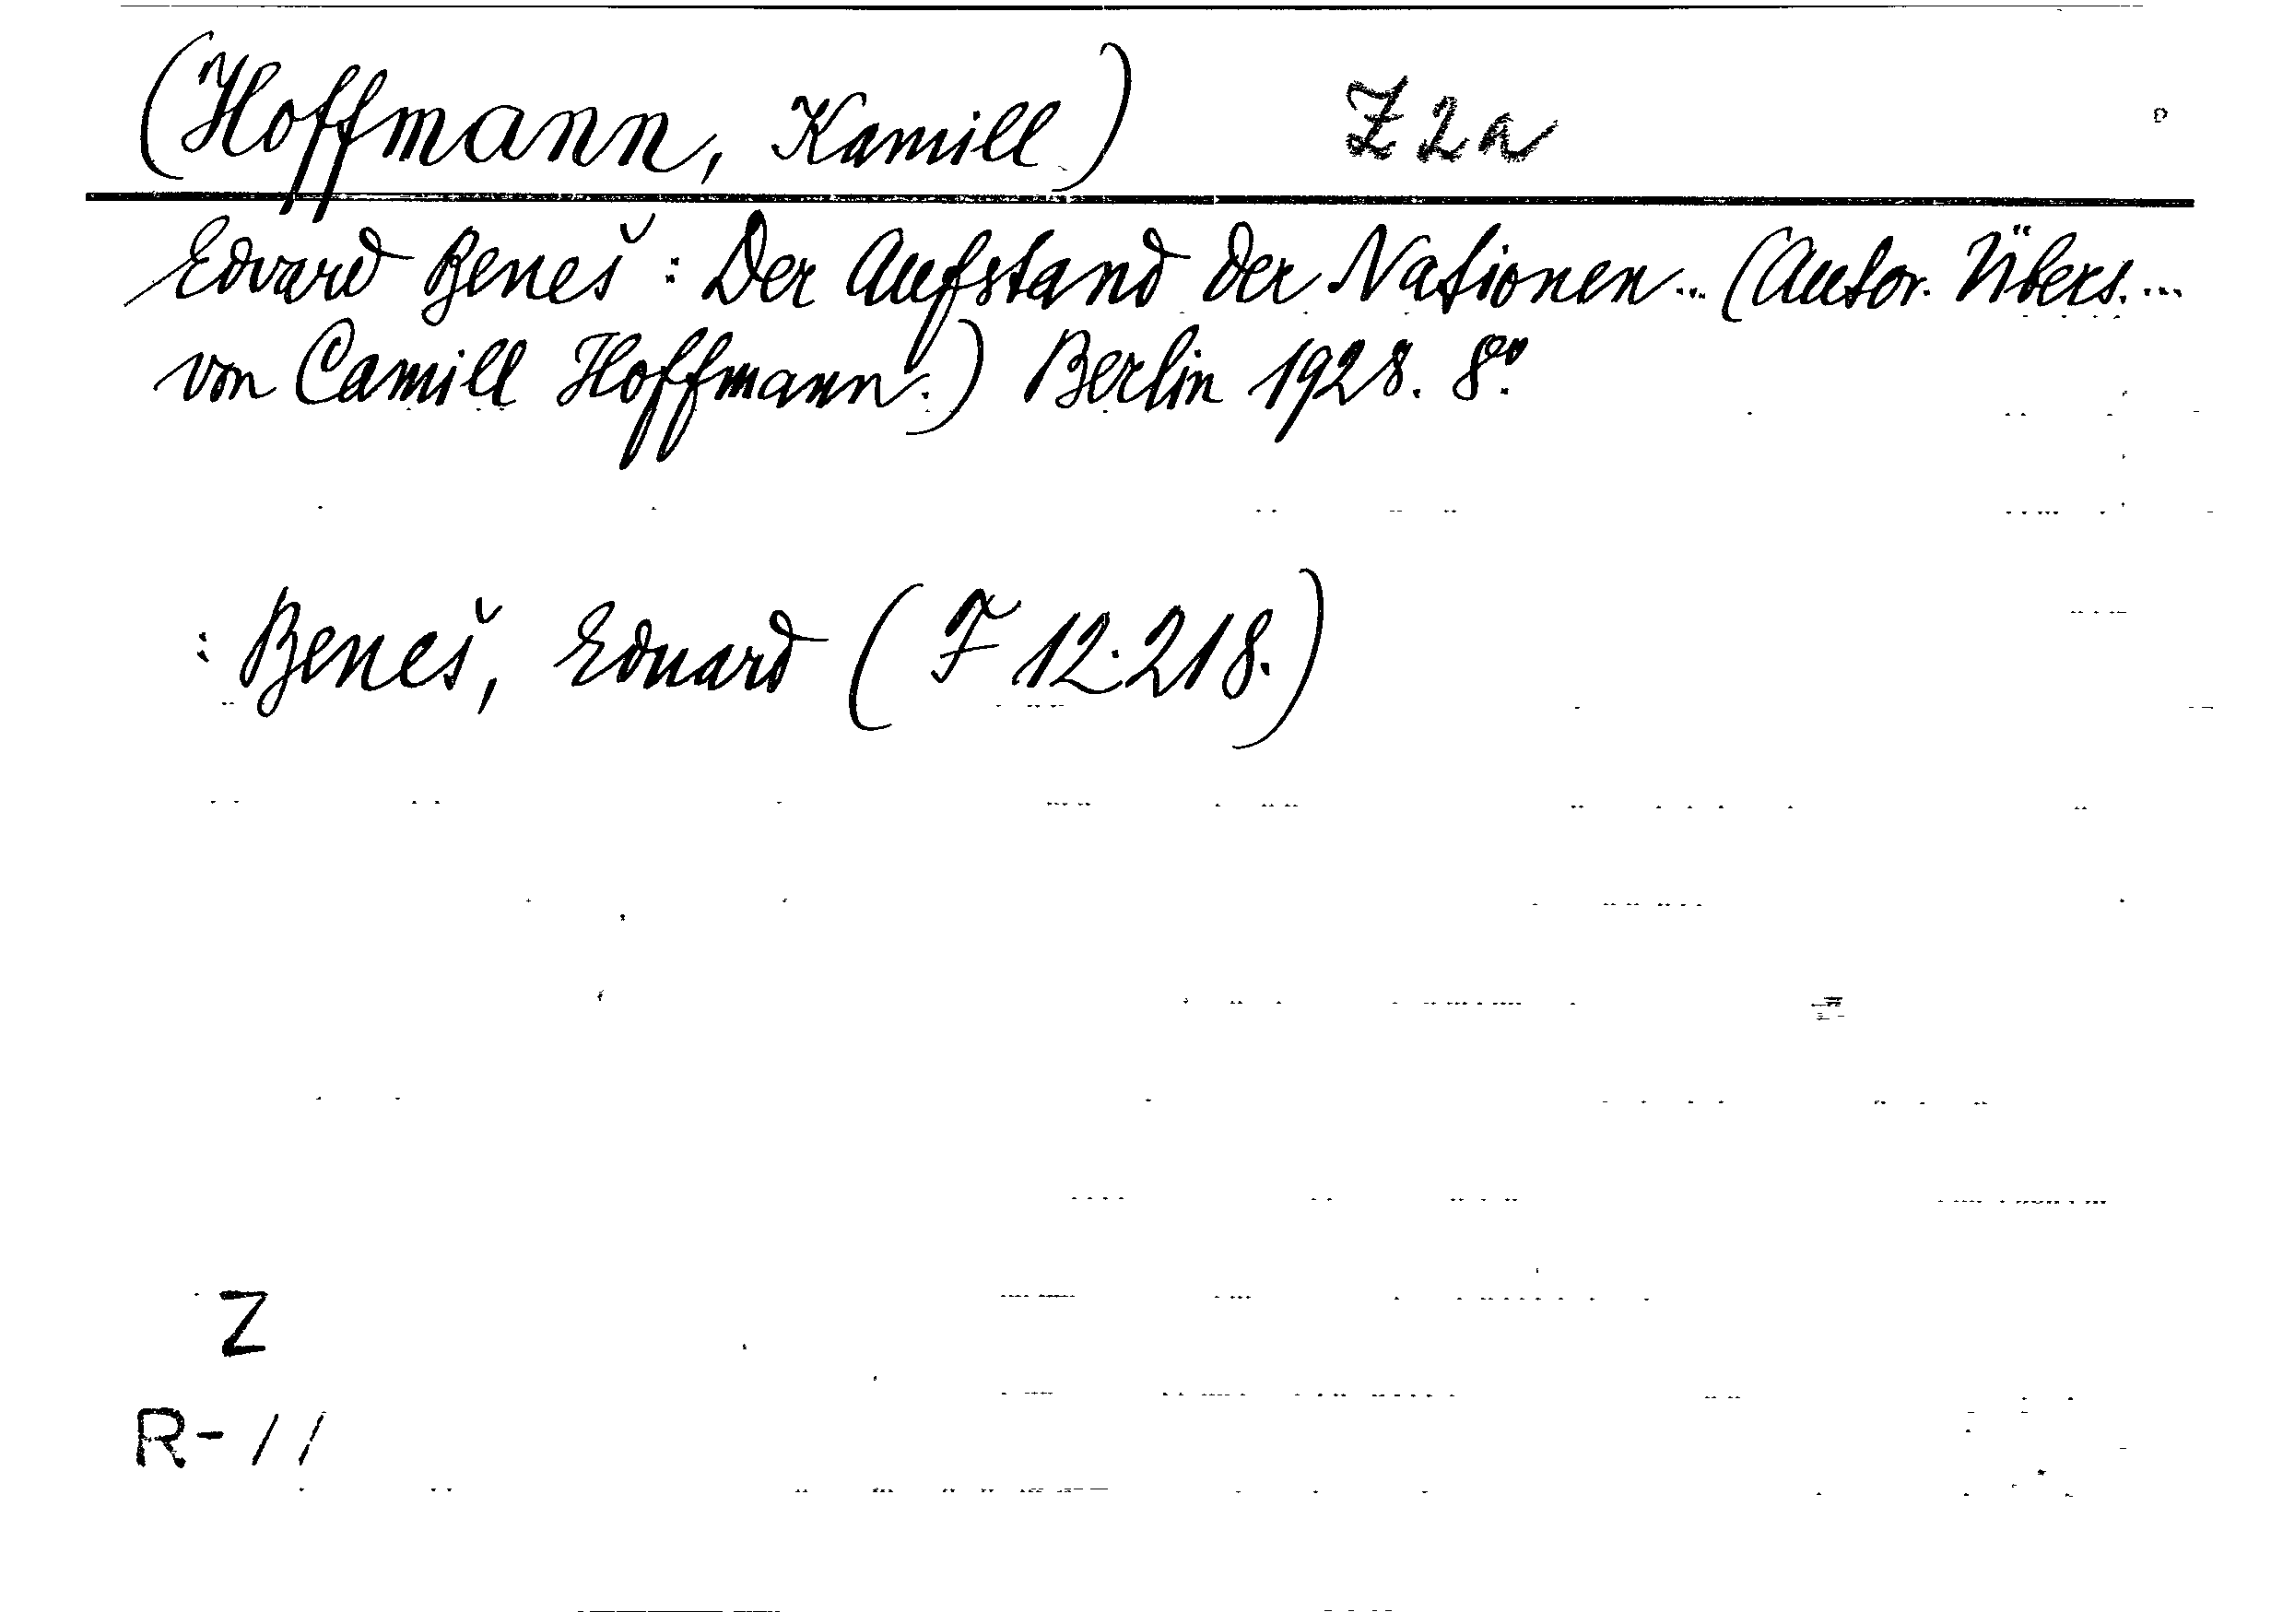 (Hoffmann, Kamill) Z 2a
Edvard Beneš: Der Aufstand der Nationen... (Autor. Übers....
von Camill Hoffmann.) Berlin 1928. 8º.
: Beneš, Eduard (F 12.218.)
Z
R-11